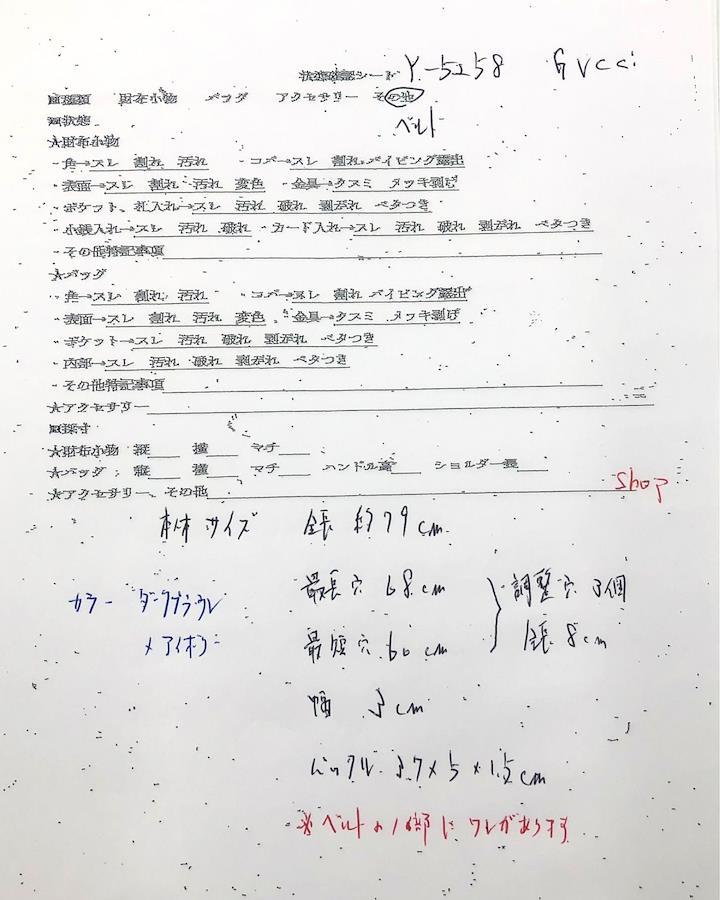 状態確認シート Y-5258 Gucci
■種類 財布小物 バッグ アクセサリー その他
■状態 ベルト
★財布小物
・角→スレ 割れ 汚れ ・コバ→スレ 割れ パイピング露出
・表面→スレ 割れ 汚れ 変色 ・金具→クスミ メッキ剥げ
・ポケット、札入れ→スレ 汚れ 破れ 剥がれ ベタつき
・小銭入れ→スレ 汚れ 破れ ・カード入れ→スレ 汚れ 破れ 剥がれ ベタつき
・その他特記事項
★バッグ
・角→スレ 割れ 汚れ ・コバ→スレ 割れ パイピング露出
・表面→スレ 割れ 汚れ 変色 ・金具→クスミ メッキ剥げ
・ポケット→スレ 汚れ 破れ 剥がれ ベタつき
・内部→スレ 汚れ 破れ 剥がれ ベタつき
・その他特記事項
★アクセサリー
■採寸
★財布小物 縦 横 マチ
★バッグ 縦 横 マチ ハンドル高 ショルダー長
★アクセサリー、その他
shop
本体サイズ 全長 約79cm
最長穴 68cm 調整穴 3個
カラー ダークブラウン
×アイボリー
最短穴 60cm 全長 8cm
幅 3cm
バックル 3.7×5×1.5cm
※ベルトの1部にワレがあります